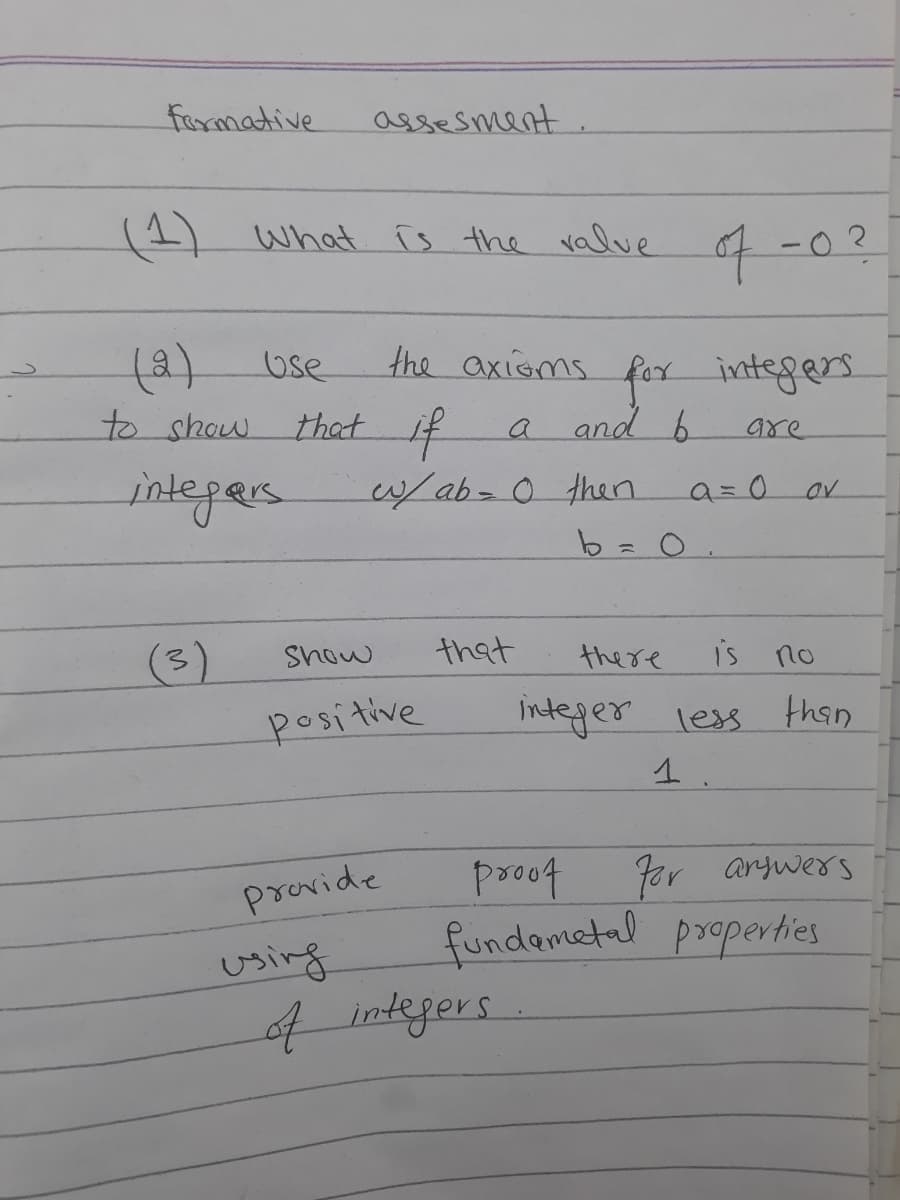 Formative assesment.
(1) What is the value of -0?
(2) Use the axioms for integers
to show that if a and b are
integers w/ ab = 0 then a = 0 or
b = 0.
(3) Show that there is no
positive integer less than
1.
provide proof for answers
using fundametal properties
of integers.